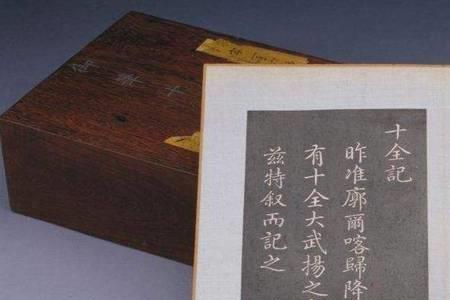 十全記
昨准廓爾喀歸降
有十全大武揚之
兹特叙而記之